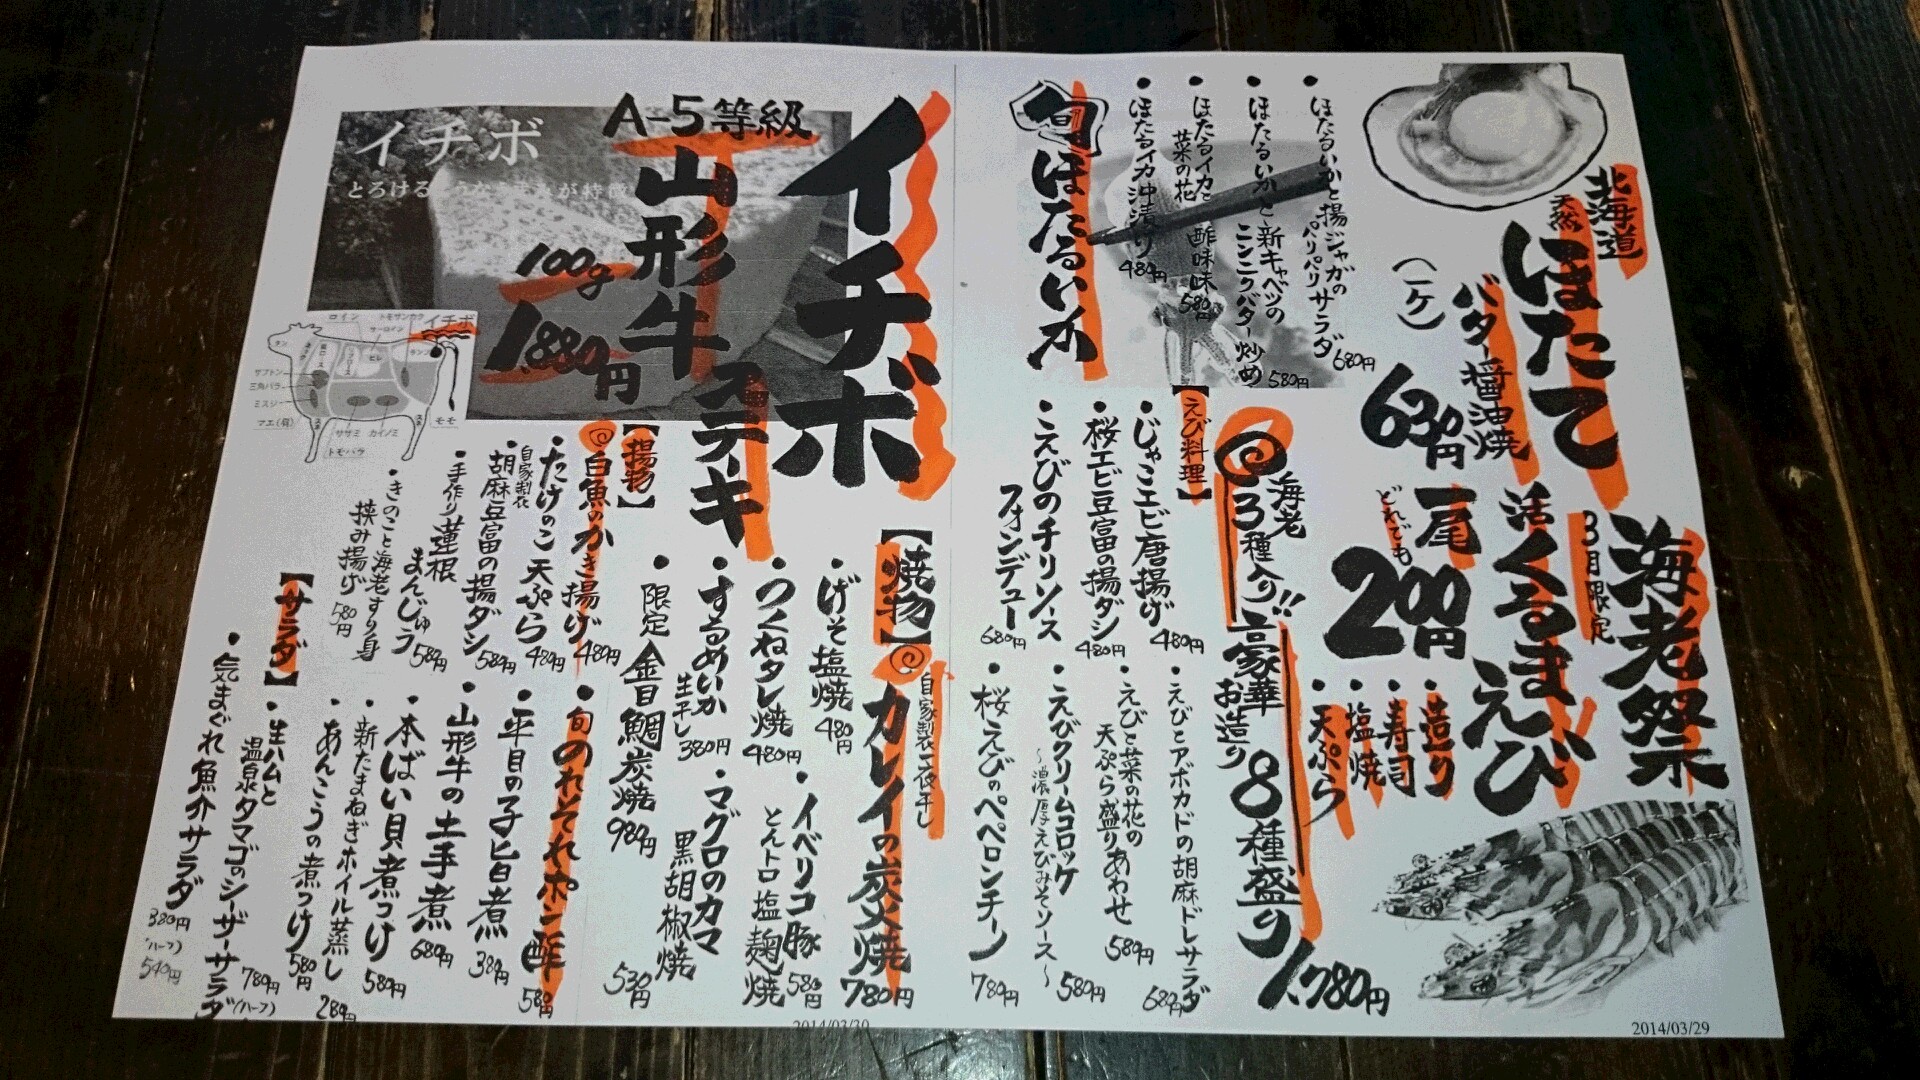 海老祭
3月限定
活くるまえび
一尾
どれでも
200円
・造り
・寿司
・塩焼
・天ぷら
北海道
天然
ほたて
バター醤油焼
(一ケ)
630円
海老
3種入り!!
豪華
お造り
8種盛り
1.780円
旬ほたるいか
・ほたるいかと揚ジャガの
パリパリサラダ
680円
・ほたるいかと新キャベツの
ニンニクバター炒め
580円
・ほたるイカと
菜の花
酢味味
580円
・ほたるイカ沖漬り
480円
【えび料理】
・じゃこエビ唐揚げ
480円
・桜エビ豆富の揚ダシ
480円
・えびのチリソース
フォンデュー
680円
・えびとアボカドの胡麻ドレサラダ
680円
・えびと菜の花の
天ぷら盛りあわせ
580円
・えびクリームコロッケ
〜濃厚えびみそソース〜
580円
・桜えびのペペロンチーノ
780円
イチボ
A-5等級
山形牛
ステーキ
100g
1.880円
イチボ
とろける
が特徴
イチボ
ロイン
トモサンカク
サーロイン
タン
ヒレ
ランプ
サブトン
三角バラ
ミスジ
マエ(肩)
ササミ
カイノミ
トモバラ
モモ
【焼物】
自家製一夜干し
カレイの炭火焼
780円
・げそ塩焼
480円
・つくねタレ焼
480円
・するめいか
生干し
380円
・限定
金目鯛炭焼
980円
・イベリコ豚
とんトロ塩麹焼
580円
・マグロのカマ
黒胡椒焼
530円
【揚物】
白魚のかき揚げ
480円
・たけのこ天ぷら
480円
自家製
・胡麻豆富の揚ダシ
580円
・手作り蓮根
まんじゅう
580円
・きのこと海老すり身
挟み揚げ
580円
・旬のれそれポン酢
580円
・平目の子旨煮
380円
・山形牛の土手煮
680円
・本ばい貝煮つけ
580円
・新たまねぎホイル蒸し
280円
・あんこうの煮つけ
580円
【サラダ】
・生ハムと
温泉タマゴのシーザーサラダ
780円
(ハーフ)
・気まぐれ魚介サラダ
380円
(ハーフ)
540円
2014/03/30
2014/03/29